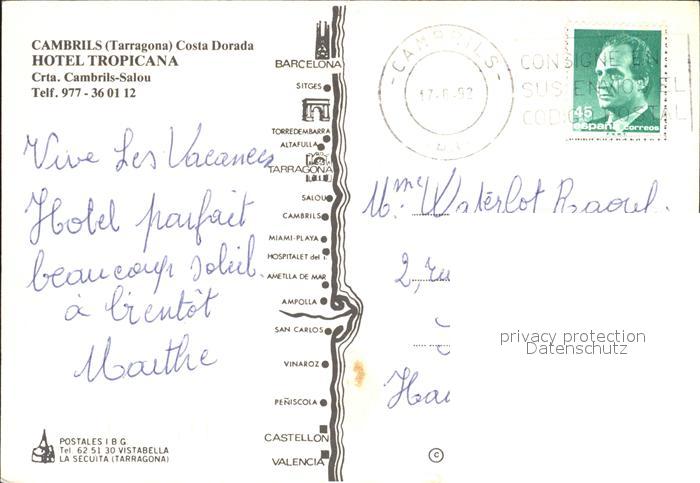 CAMBRILS (Tarragona) Costa Dorada
HOTEL TROPICANA
Crta. Cambrils-Salou
Telf. 977 - 36 01 12
Vive Les Vacances
Hotel parfait
beaucoup soleil.
à bientôt
Marthe
POSTALES I B G
Tel. 62 51 30 VISTABELLA
LA SECUITA (TARRAGONA)
BARCELONA
SITGES
TORREDEMBARRA
ALTAFULLA
TARRAGONA
SALOU
CAMBRILS
MIAMI-PLAYA
HOSPITALET del I.
AMETLLA DE MAR
AMPOLLA
SAN CARLOS
VINAROZ
PEÑISCOLA
CASTELLON
VALENCIA
-CAMBRILS-
17-6-92
CONSIGNE EN
CODIGO POSTAL
45
españa correos
Mme Waterlot Raoul.
2, ru
privacy protection
Datenschutz
©